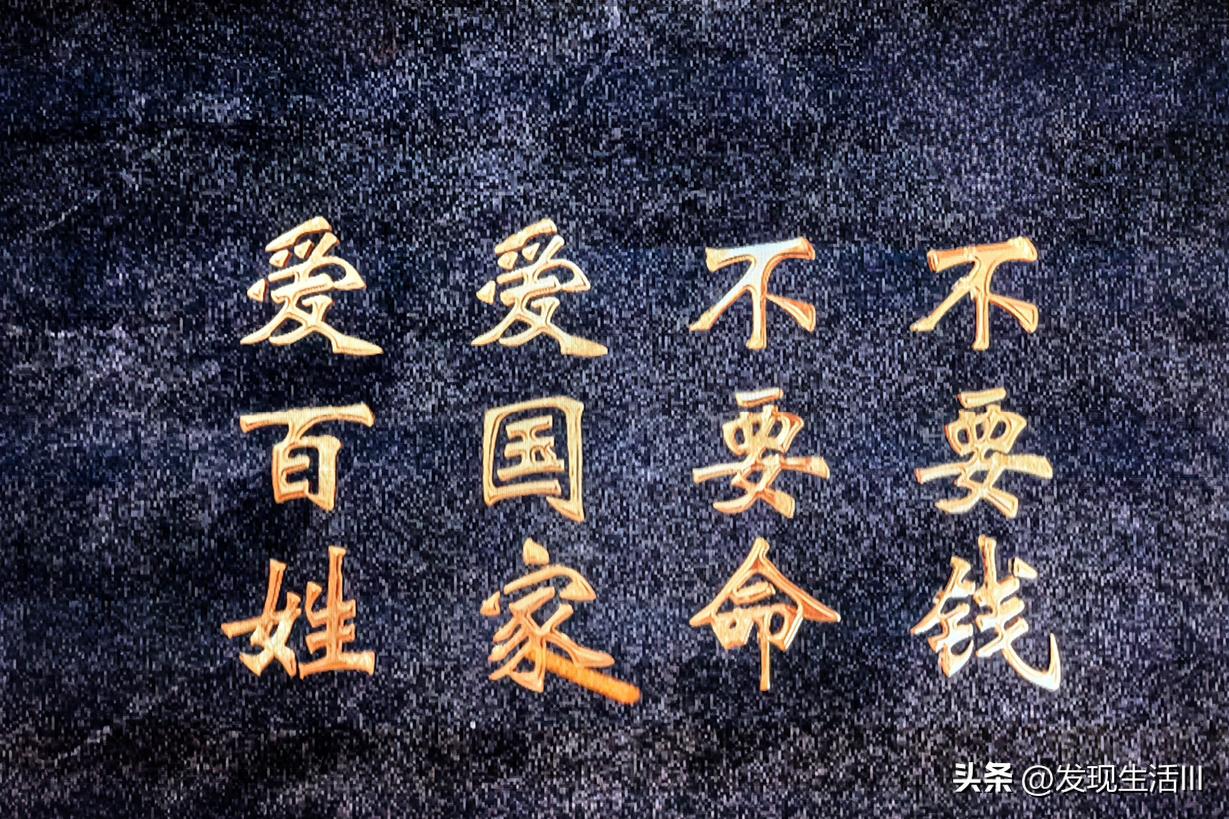 不要钱
不要命
爱国家
爱百姓
头条 @发现生活III